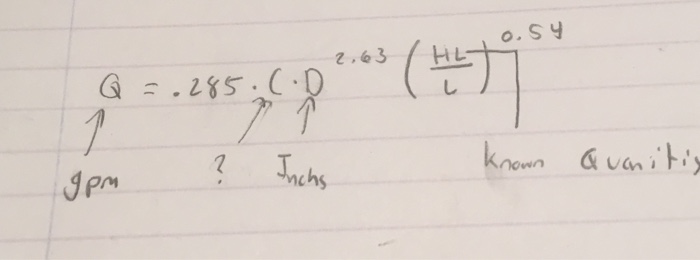 Q = .285 . C . D^2.63 (HL/L)^0.54
gpm ? Inchs known Quanitis